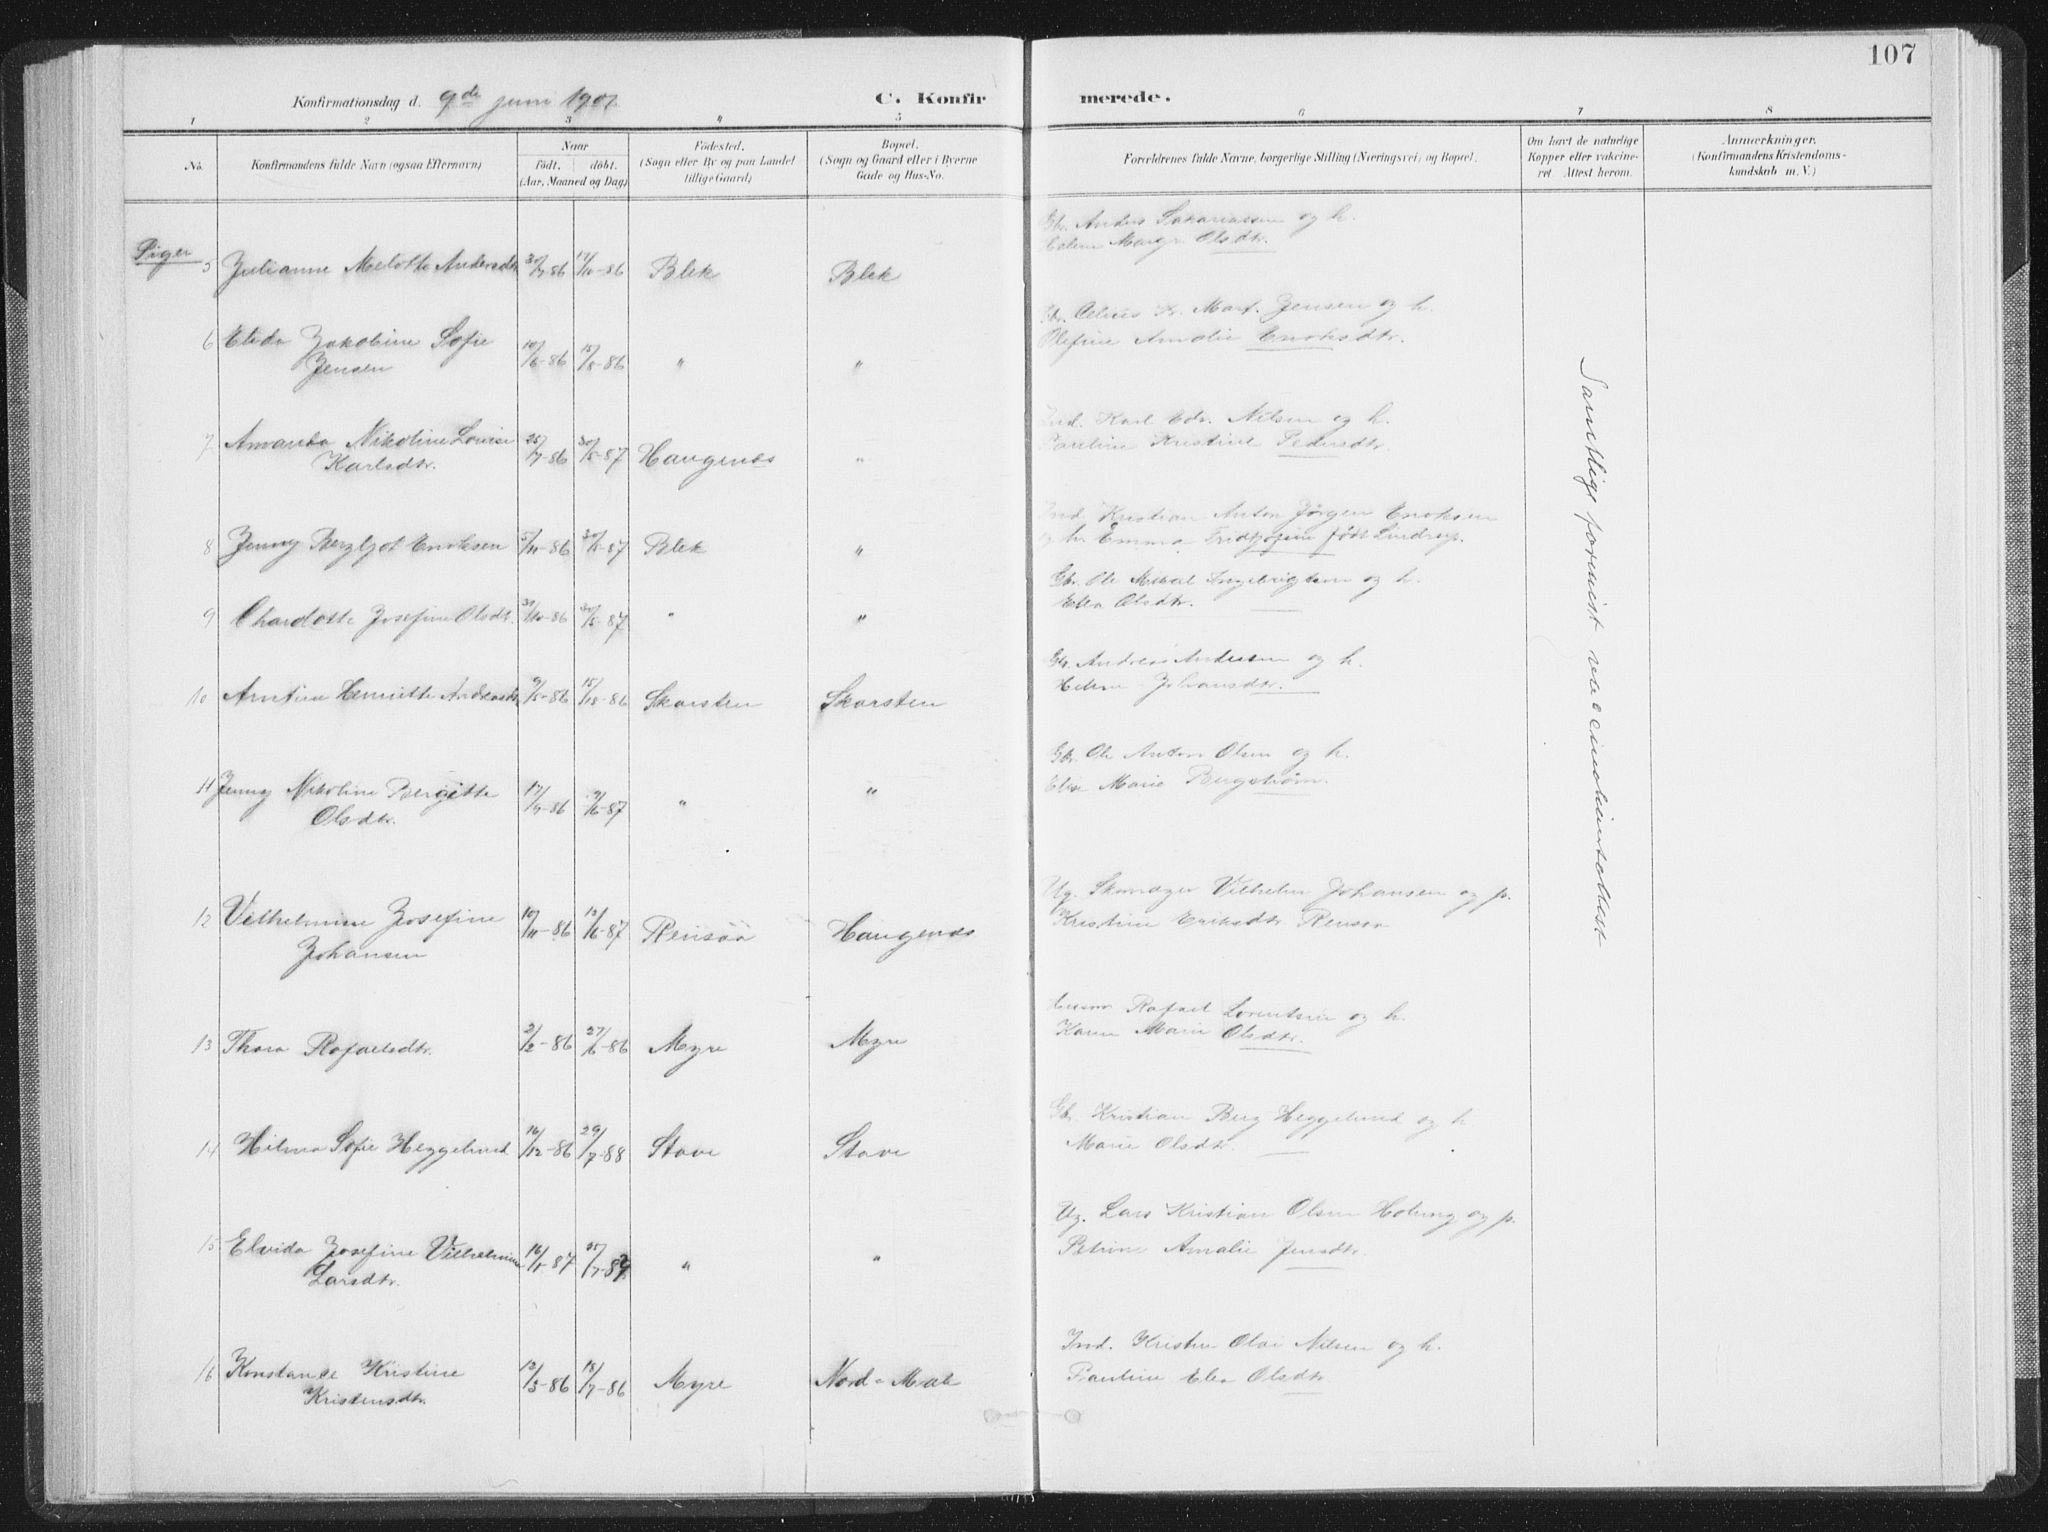 107
Konfirmationsdag d. 9de juni 1901 C. Konfir merede.
1 2 3 4 5 6 7 8
No.
Konfirmandens fulde Navn (ogsaa Efternavn)
Naar
födt. döbt.
(Aar, Maaned og Dag)
Födested.
(Sogn eller By og paa Landet
tillige Gaard)
Bopæl.
(Sogn og Gaard eller i Byerne
Gade og Hus-No.
Forældrenes fulde Navne, borgerlige Stilling (Næringsvei) og Bopæl.
Om havt de naturlige
Kopper eller vakcine-
ret. Attest herom.
Anmærkninger.
(Konfirmandens Kristendoms-
kundskab m. V.)
Piger
Gbr. Anders Sakariassen og h.
Margr. Olsdtr.
5 Julianne Melotte Andersdtr 30/7-86 17/10-86 Blek Blek
Gbr. Celius Kr. Mart. Jensen og h.
6 Elida Jakobine Sofie 10/6-86 15/8-86 " "
Jensen
Olefine Amalie Enoksdtr.
Ind. Karl Edv. Nilsen og h.
7 Amanda Nikoline Lovise 25/7-86 30/5-87 Haugenes "
Karlsdtr.
Pauline Kristine Pedersdtr.
Ind. Kristian Anton Jørgen Enoksen
og h. Emma Fridtjofine født Lindrup.
8 Jenny Bergljot Enoksen 5/11-86 30/5-87 Blek "
Gbr. Ole Mikal Ingebrigtsen og h.
Elen Olsdtr.
9 Chardotte Josefine Olsdtr. 31/10-86 30/5-87 " "
Gbr. Andreas Andersen og h.
Helene Johansdtr.
10 Arntine Henriette Andreasdtr. 9/5-86 15/8-86 Skarsten Skarsten
Gbr. Ole Anton Olsen og h.
Elise Marie Bergstrøm.
11 Jenny Nikoline Bergitte 17/7-86 19/6-87 " "
Olsdtr.
Ug. Skomager Vilhelm Johansen og p.
Kristine Eriksdtr Rensaa
12 Vilhelmine Josefine 10/11-86 13/6-87 Rensåa Haugenes
Johansen
Rafael Lorentsen og h.
Karen Marie Olsdtr.
13 Thora Rafaelsdtr. 2/2-86 27/6-86 Myre Myre
Gbr. Kristian Berg Heggelund og h.
Marie Olsdtr.
14 Hilma Sofie Heggelund 16/12-86 29/7-88 Stave Stave
Ug. Lars Kristian Olsen Holung og p.
Petrine Amalie Jensdtr.
15 Elvida Josefine Vilhelmine 16/1-87 " "
Larsdtr.
Ind. Kristen Olai Nilsen og h.
Pauline Elen Olsdtr
16 Konstanse Kristine 12/3-86 18/7-86 Myre Nord-Mele
Kristensdtr.
Samtlige forevist vaccinationsattest